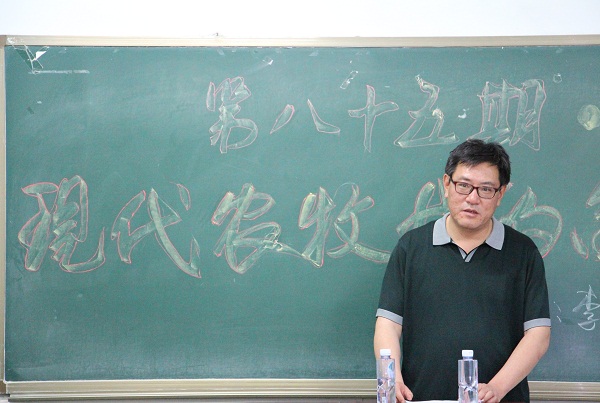 第八十五期
现代农牧
李